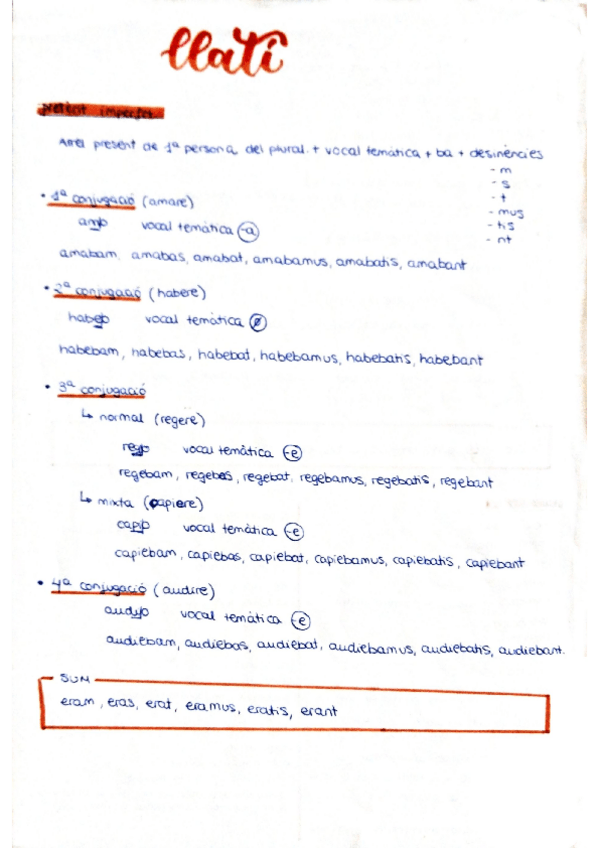 llatí
pretèrit imperfet
Arrel present de 1ª persona del plural + vocal temàtica + ba + desinències
- m
- s
- t
- mus
- tis
- nt
• 1ª conjugació (amare)
amo vocal temàtica -a
amabam, amabas, amabat, amabamus, amabatis, amabant
• 2ª conjugació (habere)
habeo vocal temàtica ø
habebam, habebas, habebat, habebamus, habebatis, habebant
• 3ª conjugació
↳ normal (regere)
rego vocal temàtica -e
regebam, regebas, regebat, regebamus, regebatis, regebant
↳ mixta (capiere)
capio vocal temàtica -e
capiebam, capiebas, capiebat, capiebamus, capiebatis, capiebant
• 4ª conjugació (audire)
audio vocal temàtica -e
audiebam, audiebas, audiebat, audiebamus, audiebatis, audiebant.
SUM
eram, eras, erat, eramus, eratis, erant